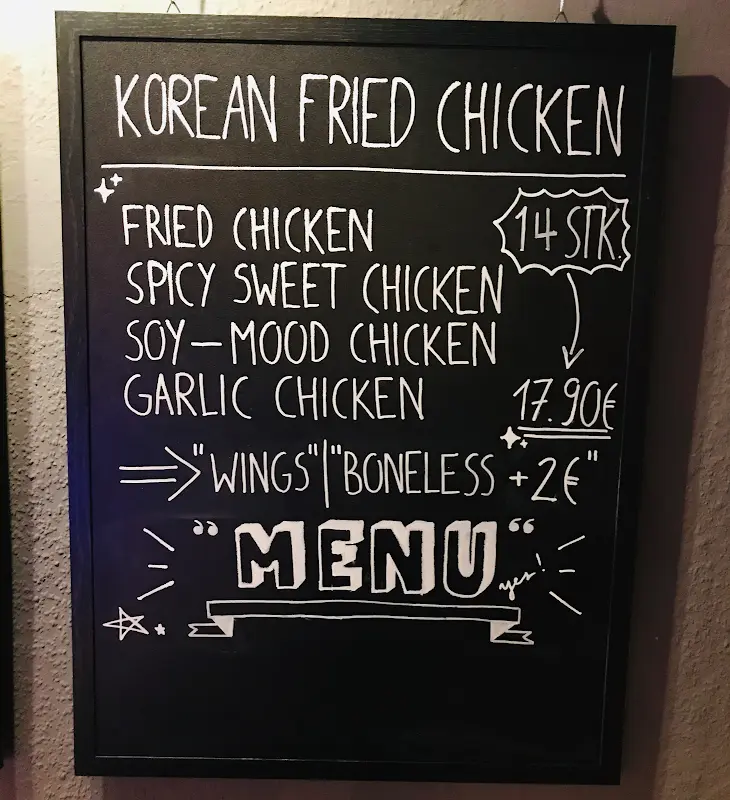 KOREAN FRIED CHICKEN
FRIED CHICKEN
14 STK.
SPICY SWEET CHICKEN
SOY-MOOD CHICKEN
GARLIC CHICKEN
17.90€
"WINGS"|"BONELESS +2€"
"MENU"
yes!